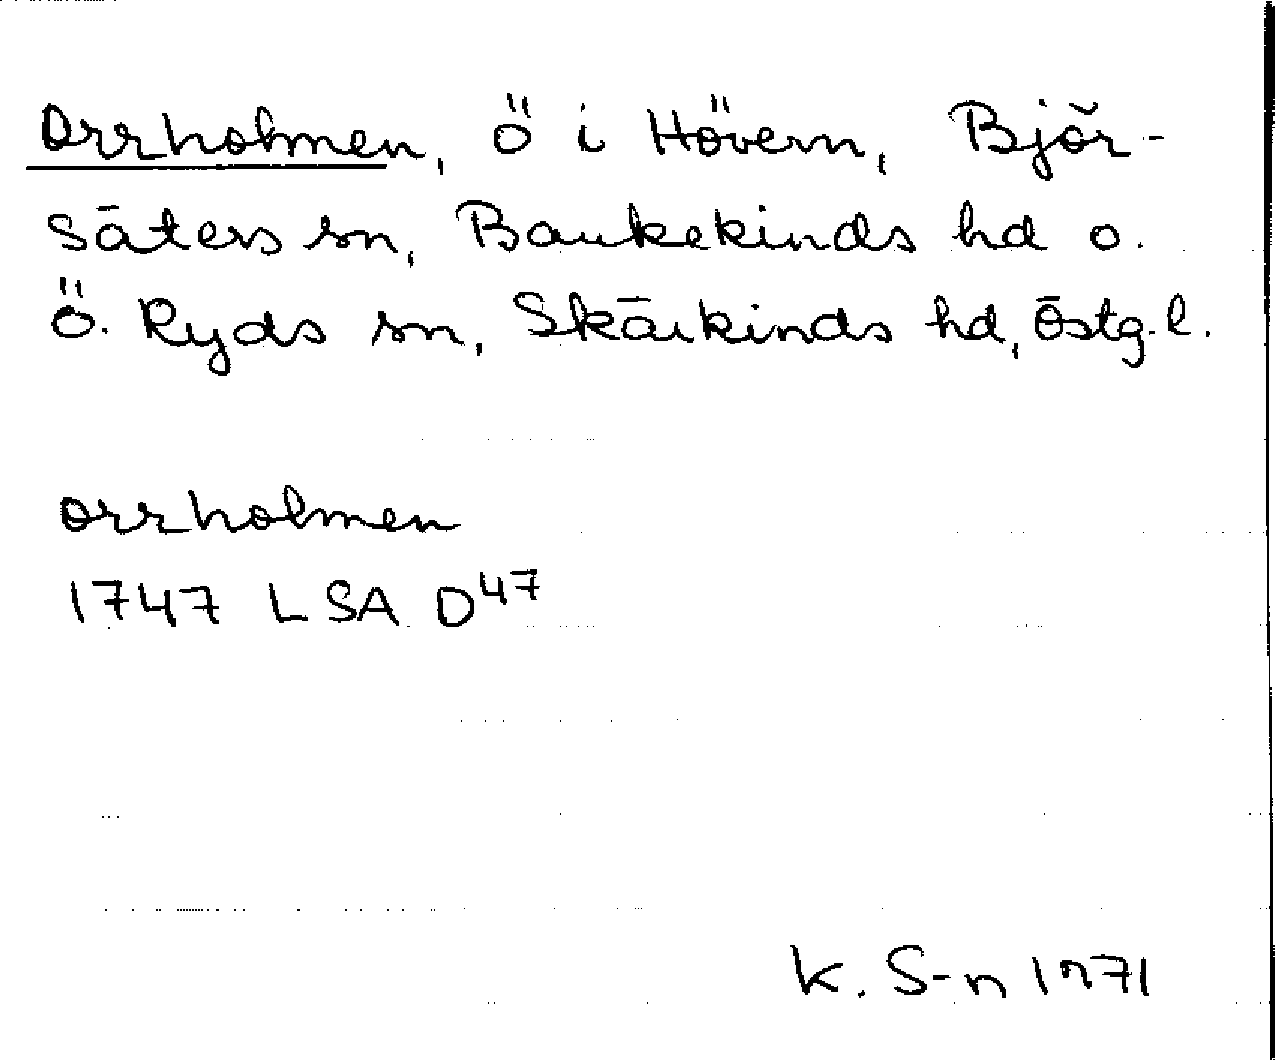 Orrholmen, ö i Hövern, Björ-
säters sn, Bankekinds hd o.
Ö. Ryds sn, Skärkinds hd, Östg. l.
orrholmen
1747 LSA D47
K. S-n 1971